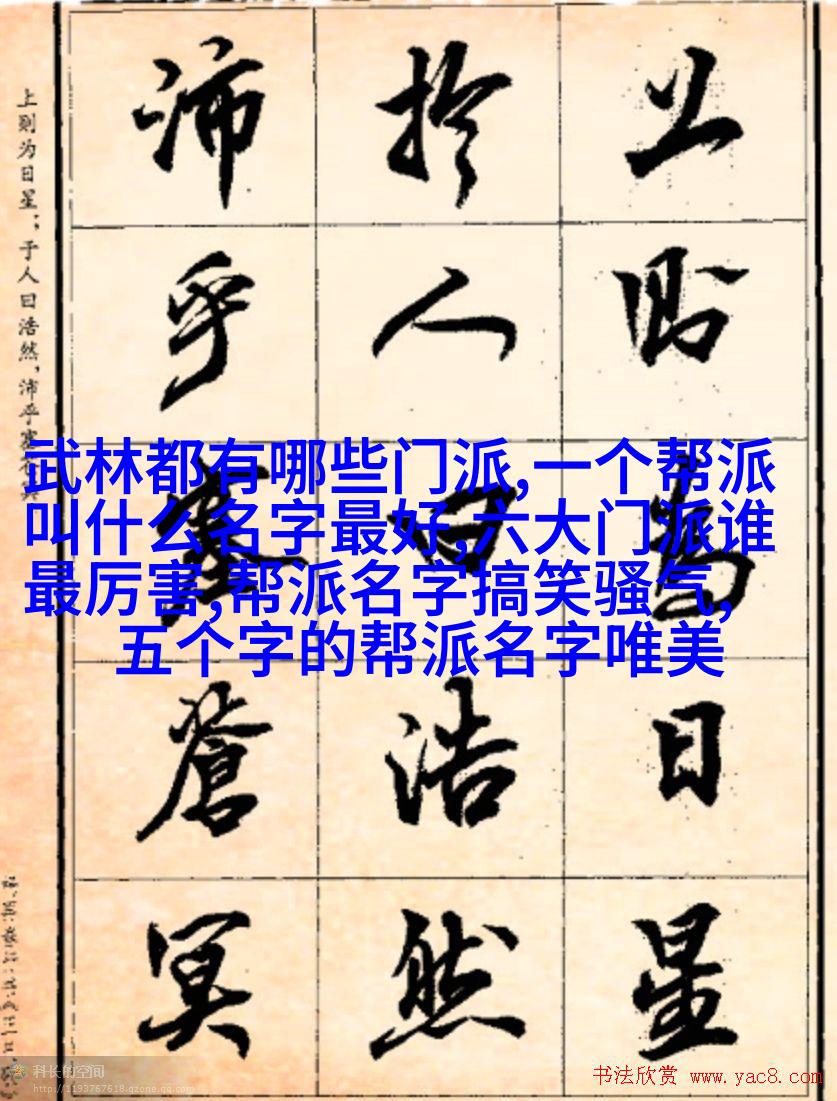 上则为日星；于人曰浩然，沛乎塞苍冥
上則為日星
扵人曰浩然
沛乎塞蒼冥
武林都有哪些门派,一个帮派
叫什么名字最好,六大门派谁
最厉害,帮派名字搞笑骚气,
五个字的帮派名字唯美
科长的空间
http://1193767618.qzone.qq.com
书法欣赏 www.yac8.com